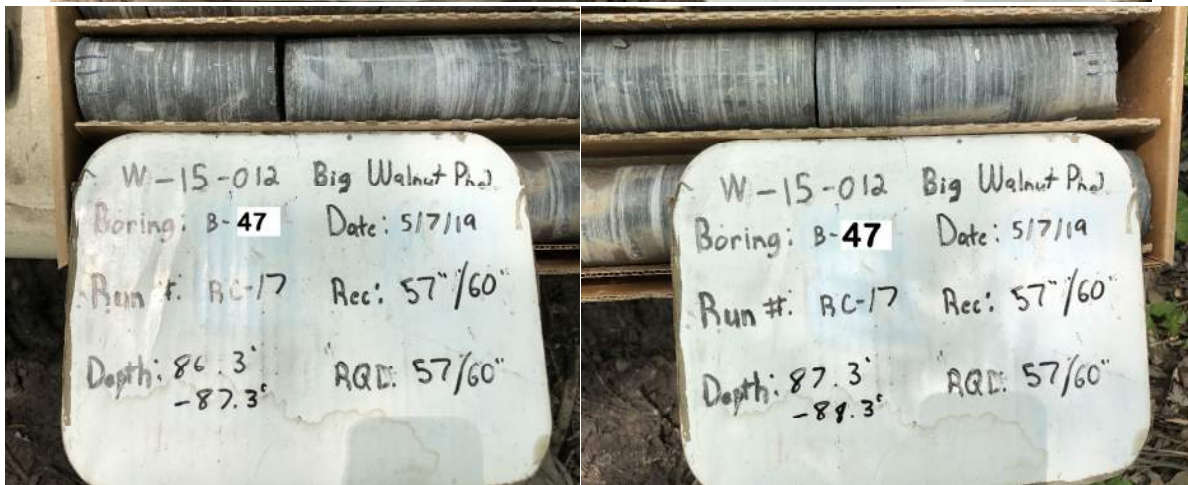 W-15-012 Big Walnut Ph.2
Boring: B-47 Date: 5/7/19
Run #: RC-17 Rec: 57"/60"
Depth: 86.3' RQD: 57/60"
-87.3'
W-15-012 Big Walnut Ph.2
Boring: B-47 Date: 5/7/19
Run #: RC-17 Rec: 57"/60"
Depth: 87.3' RQD: 57/60"
-88.3'